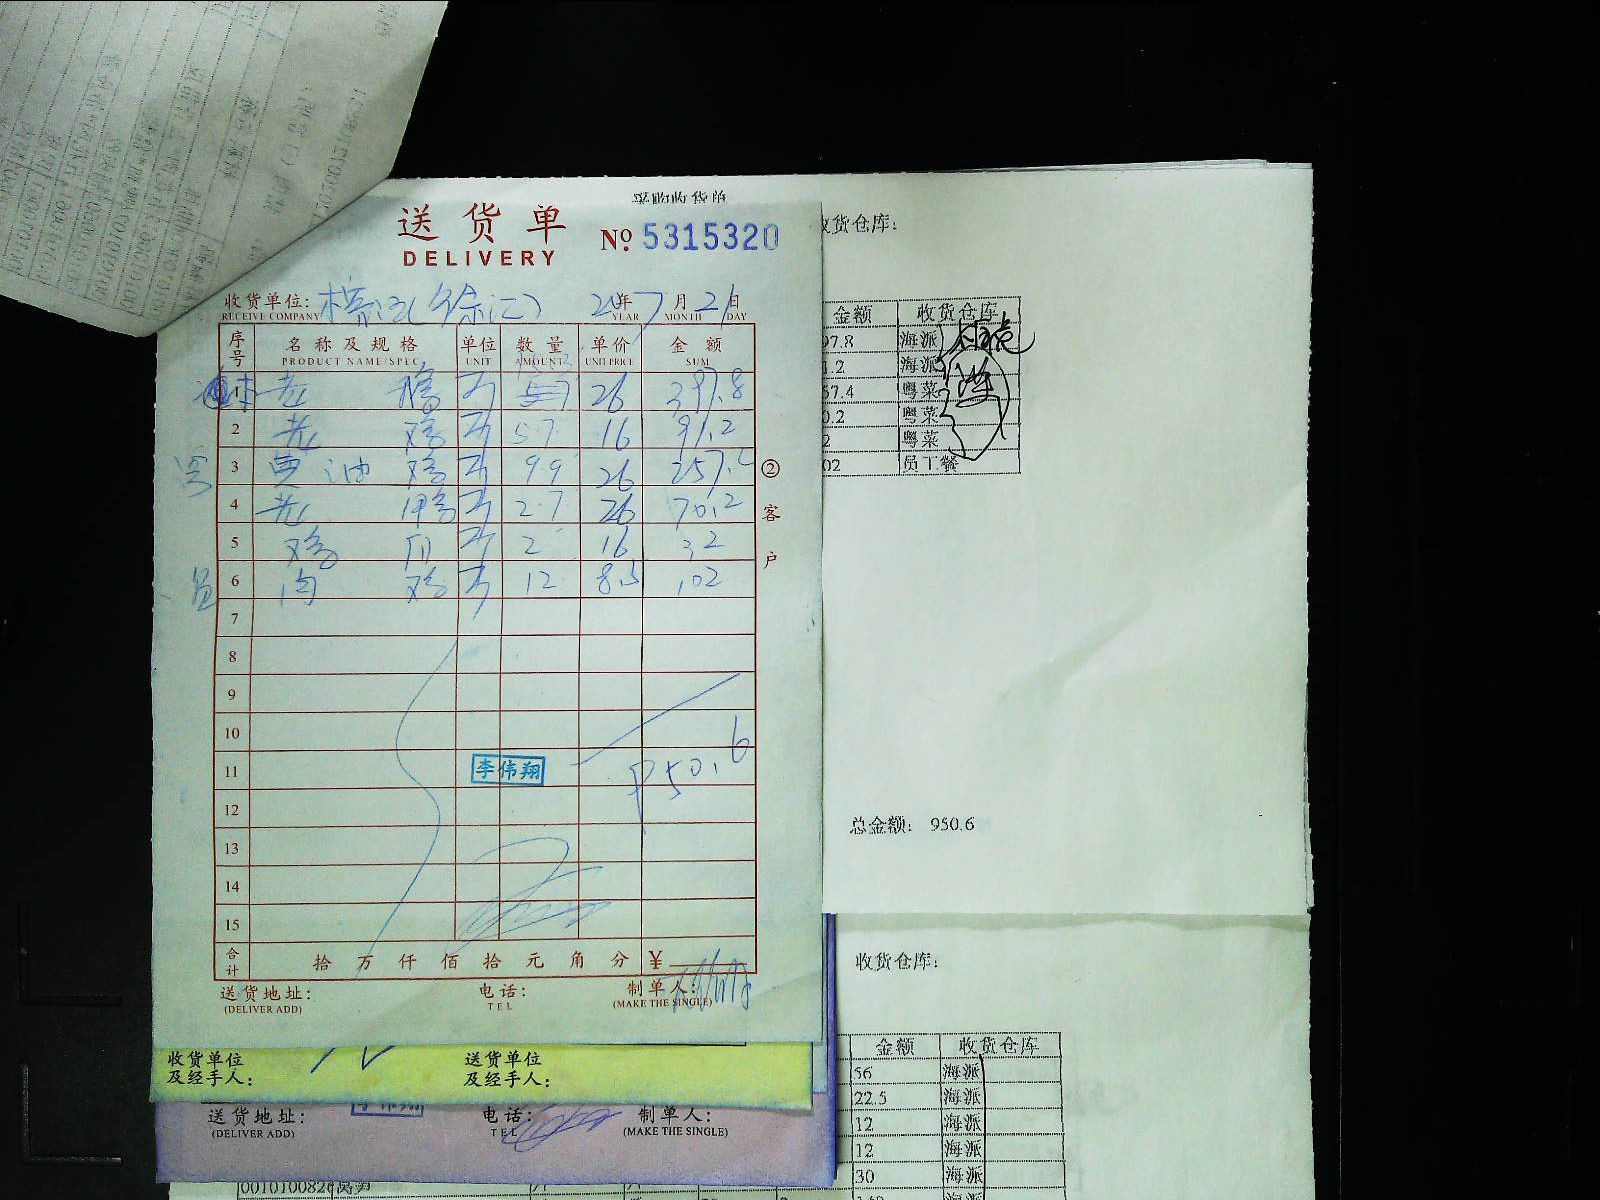 送货单
DELIVERY
№ 5315320
收货单位:
RECEIVE COMPANY
年 7 月 21 日
YEAR MONTH DAY
序号 名称及规格 单位 数量 单价 金额
PRODUCT NAME/SPEC. UNIT AMOUNT UNIT PRICE SUM
老 鹅 斤 26 397.8
2 老 鸡 斤 5.7 16 91.2
3 油 鸡 斤 9.9 26 257.4
4 老 鸭 斤 2.7 26 70.2
5 鸡 斤 2 16 32
6 肉 鸡 斤 12 8.5 102
7
8
9
10
11
12
13
14
15
950.6
李伟翔
合计 拾 万 仟 佰 拾 元 角 分 ¥
送货地址: 电话: 制单人:
(DELIVER ADD) TEL (MAKE THE SINGLE)
②客户
收货单位 送货单位
及经手人: 及经手人:
送货地址: 电话: 制单人:
(DELIVER ADD) TEL (MAKE THE SINGLE)
收货仓库:
金额 收货仓库
97.8 海派
1.2 海派
57.4 粤菜
0.2 粤菜
2 粤菜
02 员工餐
总金额: 950.6
收货仓库:
金额 收货仓库
56 海派
22.5 海派
12 海派
12 海派
30 海派